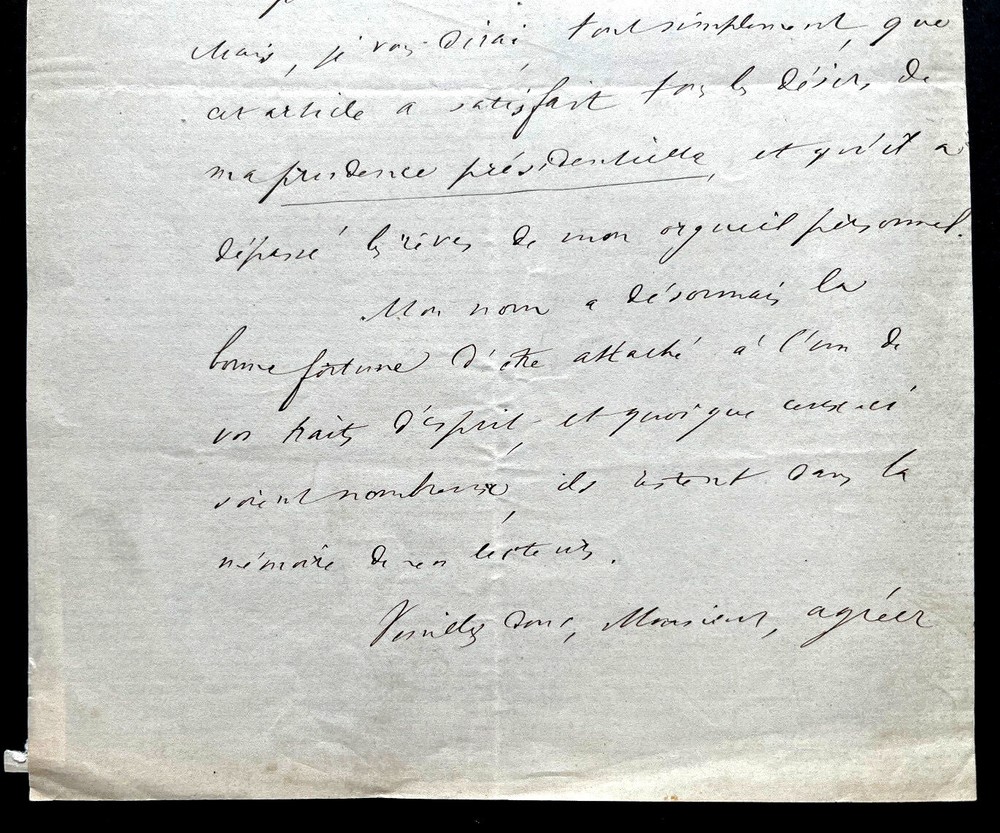 Mais, je vous dirai, tout simplement, que
cet article a satisfait tous les désirs de
ma prudence présidentielle, et qu'il a
dépassé les rêves de mon orgueil personnel.
Mon nom a désormais la
bonne fortune d'être attaché à l'un de
vos traits d'esprit, et quoique ceux-ci
soient nombreux, ils restent dans la
mémoire de vos lecteurs.
Veuillez donc, Monsieur, agréer